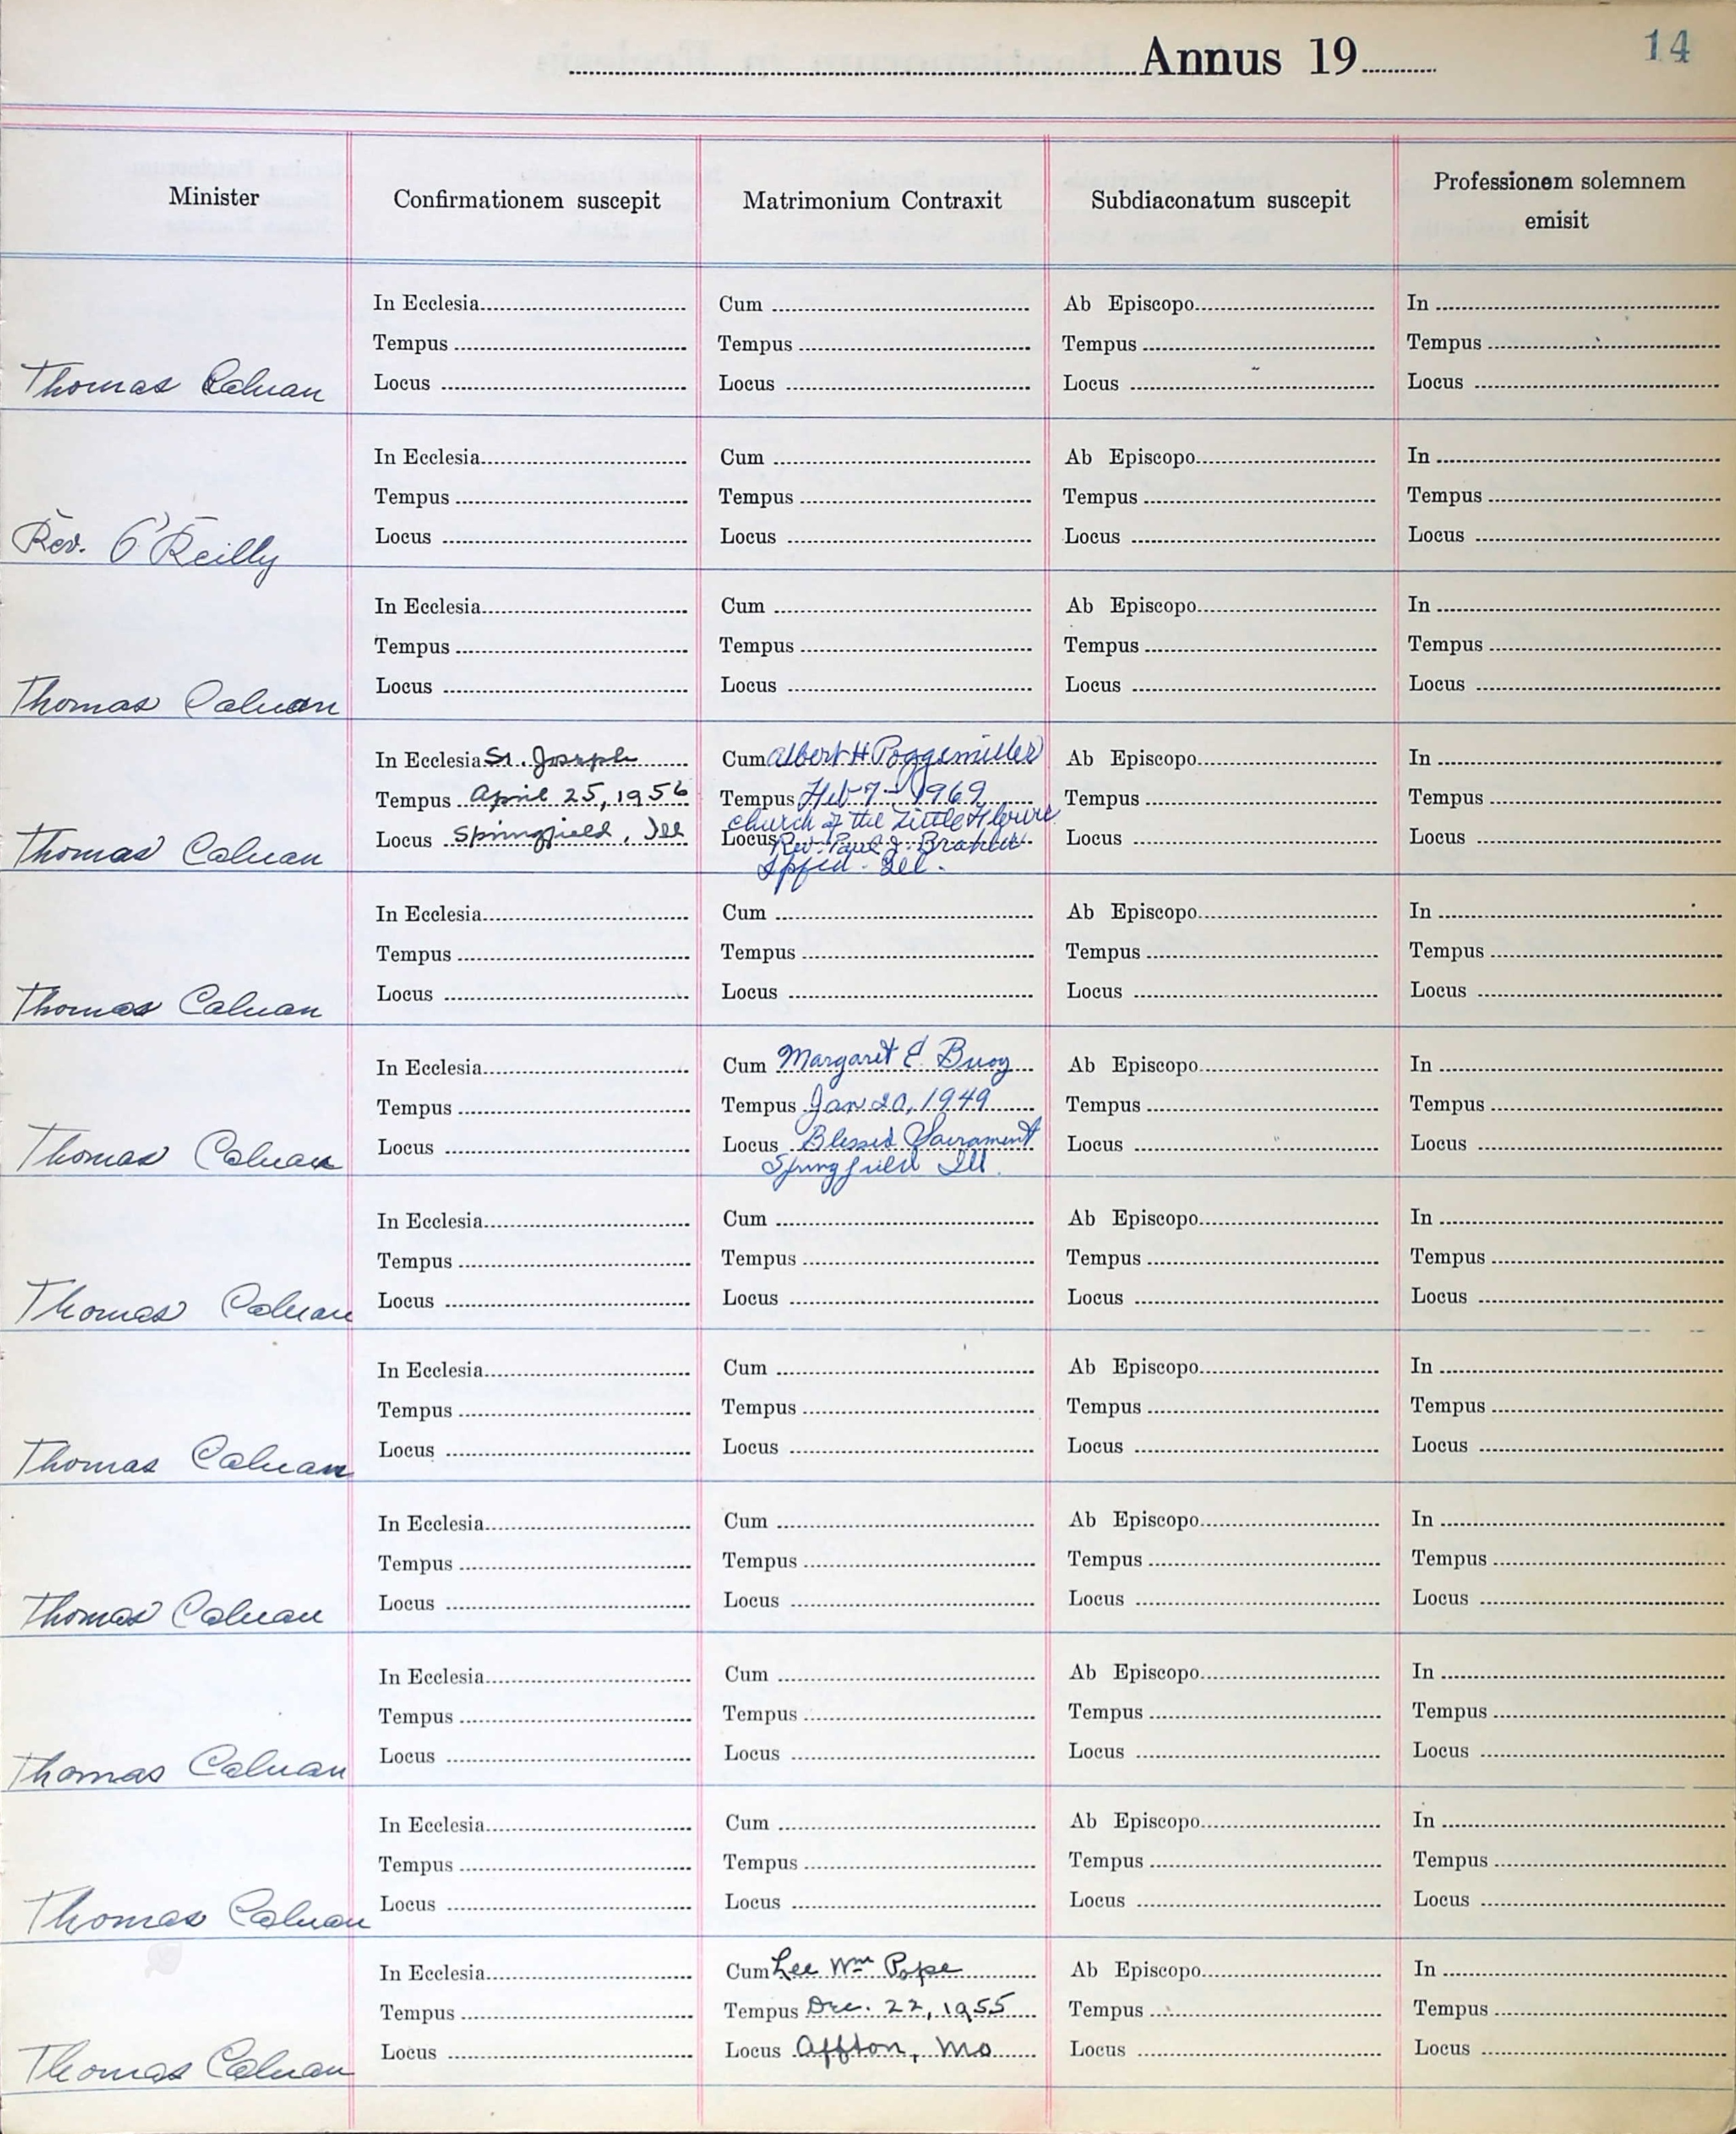 Annus 19
14
Minister
Confirmationem suscepit
Matrimonium Contraxit
Subdiaconatum suscepit
Professionem solemnem
emisit
In Ecclesia Cum Ab Episcopo In
Tempus Tempus Tempus Tempus
Thomas Calnan Locus Locus Locus Locus
In Ecclesia Cum Ab Episcopo In
Tempus Tempus Tempus Tempus
Rev. O'Reilly Locus Locus Locus Locus
In Ecclesia Cum Ab Episcopo In
Tempus Tempus Tempus Tempus
Thomas Calnan Locus Locus Locus Locus
In Ecclesia St. Joseph Cum Albert H Poggemiller Ab Episcopo In
Tempus April 25, 1956 Tempus Feb 7 - 1969 Tempus Tempus
Church of the Little Flower
Thomas Calnan Locus Springfield, Ill Locus Rev. Paul J. Locus Locus
Spfld. Ill.
In Ecclesia Cum Ab Episcopo In
Tempus Tempus Tempus Tempus
Thomas Calnan Locus Locus Locus Locus
In Ecclesia Cum Margaret E. Buoy Ab Episcopo In
Tempus Tempus Jan 20, 1949 Tempus Tempus
Thomas Calnan Locus Locus Blessed Sacrament Locus Locus
Springfield Ill.
In Ecclesia Cum Ab Episcopo In
Tempus Tempus Tempus Tempus
Thomas Calnan Locus Locus Locus Locus
In Ecclesia Cum Ab Episcopo In
Tempus Tempus Tempus Tempus
Thomas Calnan Locus Locus Locus Locus
In Ecclesia Cum Ab Episcopo In
Tempus Tempus Tempus Tempus
Thomas Calnan Locus Locus Locus Locus
In Ecclesia Cum Ab Episcopo In
Tempus Tempus Tempus Tempus
Thomas Calnan Locus Locus Locus Locus
In Ecclesia Cum Ab Episcopo In
Tempus Tempus Tempus Tempus
Thomas Calnan Locus Locus Locus Locus
In Ecclesia Cum Lee Wm Pope Ab Episcopo In
Tempus Tempus Dec. 22, 1955 Tempus Tempus
Thomas Calnan Locus Locus Affton, Mo Locus Locus